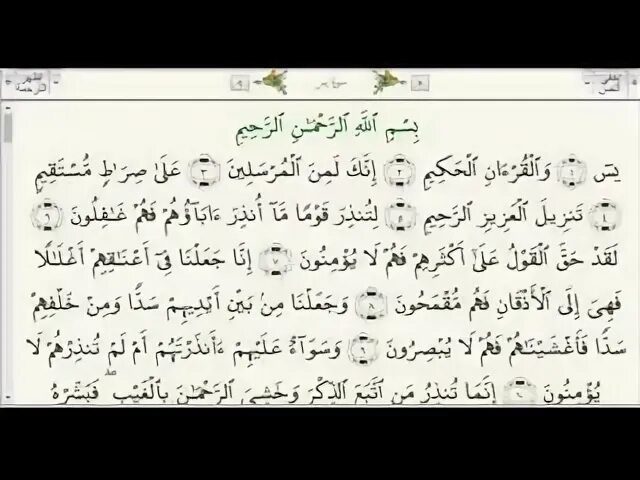 بِسْمِ ٱللَّهِ ٱلرَّحْمَٰنِ ٱلرَّحِيمِ
يسٓ ١ وَٱلْقُرْءَانِ ٱلْحَكِيمِ ٢ إِنَّكَ لَمِنَ ٱلْمُرْسَلِينَ ٣ عَلَىٰ صِرَٰطٍ مُّسْتَقِيمٍ
٤ تَنزِيلَ ٱلْعَزِيزِ ٱلرَّحِيمِ ٥ لِتُنذِرَ قَوْمًا مَّآ أُنذِرَ ءَابَآؤُهُمْ فَهُمْ غَٰفِلُونَ ٦
لَقَدْ حَقَّ ٱلْقَوْلُ عَلَىٰٓ أَكْثَرِهِمْ فَهُمْ لَا يُؤْمِنُونَ ٧ إِنَّا جَعَلْنَا فِىٓ أَعْنَٰقِهِمْ أَغْلَٰلًا
فَهِىَ إِلَى ٱلْأَذْقَانِ فَهُم مُّقْمَحُونَ ٨ وَجَعَلْنَا مِنۢ بَيْنِ أَيْدِيهِمْ سَدًّا وَمِنْ خَلْفِهِمْ
سَدًّا فَأَغْشَيْنَٰهُمْ فَهُمْ لَا يُبْصِرُونَ ٩ وَسَوَآءٌ عَلَيْهِمْ ءَأَنذَرْتَهُمْ أَمْ لَمْ تُنذِرْهُمْ لَا
يُؤْمِنُونَ ١٠ إِنَّمَا تُنذِرُ مَنِ ٱتَّبَعَ ٱلذِّكْرَ وَخَشِىَ ٱلرَّحْمَٰنَ بِٱلْغَيْبِ ۖ فَبَشِّرْهُ